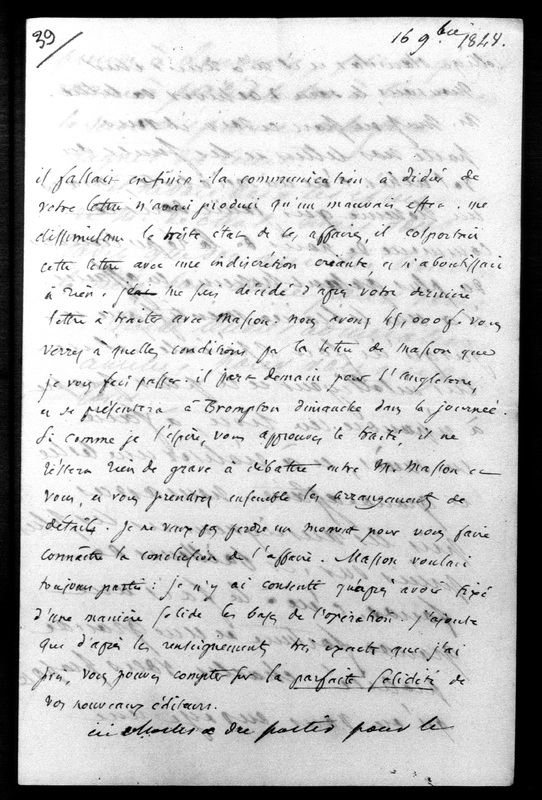 39
16 9bre 1848.
il fallait en finir. la communication à Didier de
votre lettre n'avait produit qu'un mauvais effet. me
dissimulant le triste état de ses affaires, il colportait
cette lettre avec une indiscrétion criante, et n'aboutissait
à rien. je me suis décidé d'après votre dernière
lettre à traiter avec Masson. nous avons 45,000 f. vous
verrez à quelles conditions par la lettre de Masson que
je vous fais passer. il part demain pour l'angleterre,
et se présentera à Brompton dimanche dans la journée.
Si comme je l'espère, vous approuvez le traité, il ne
restera rien de grave à débattre entre M. Masson et
vous, et vous prendrez ensemble les arrangements de
détails. Je ne veux pas perdre un moment pour vous faire
connaître la conclusion de l'affaire. Masson voulait
toujours partir : je n'y ai consenti qu'après avoir fixé
d'une manière solide les bases de l'opération. j'ajoute
que d'après les renseignements très exacts que j'ai
pris, vous pouvez compter sur la parfaite solidité de
vos nouveaux éditeurs.
pour le